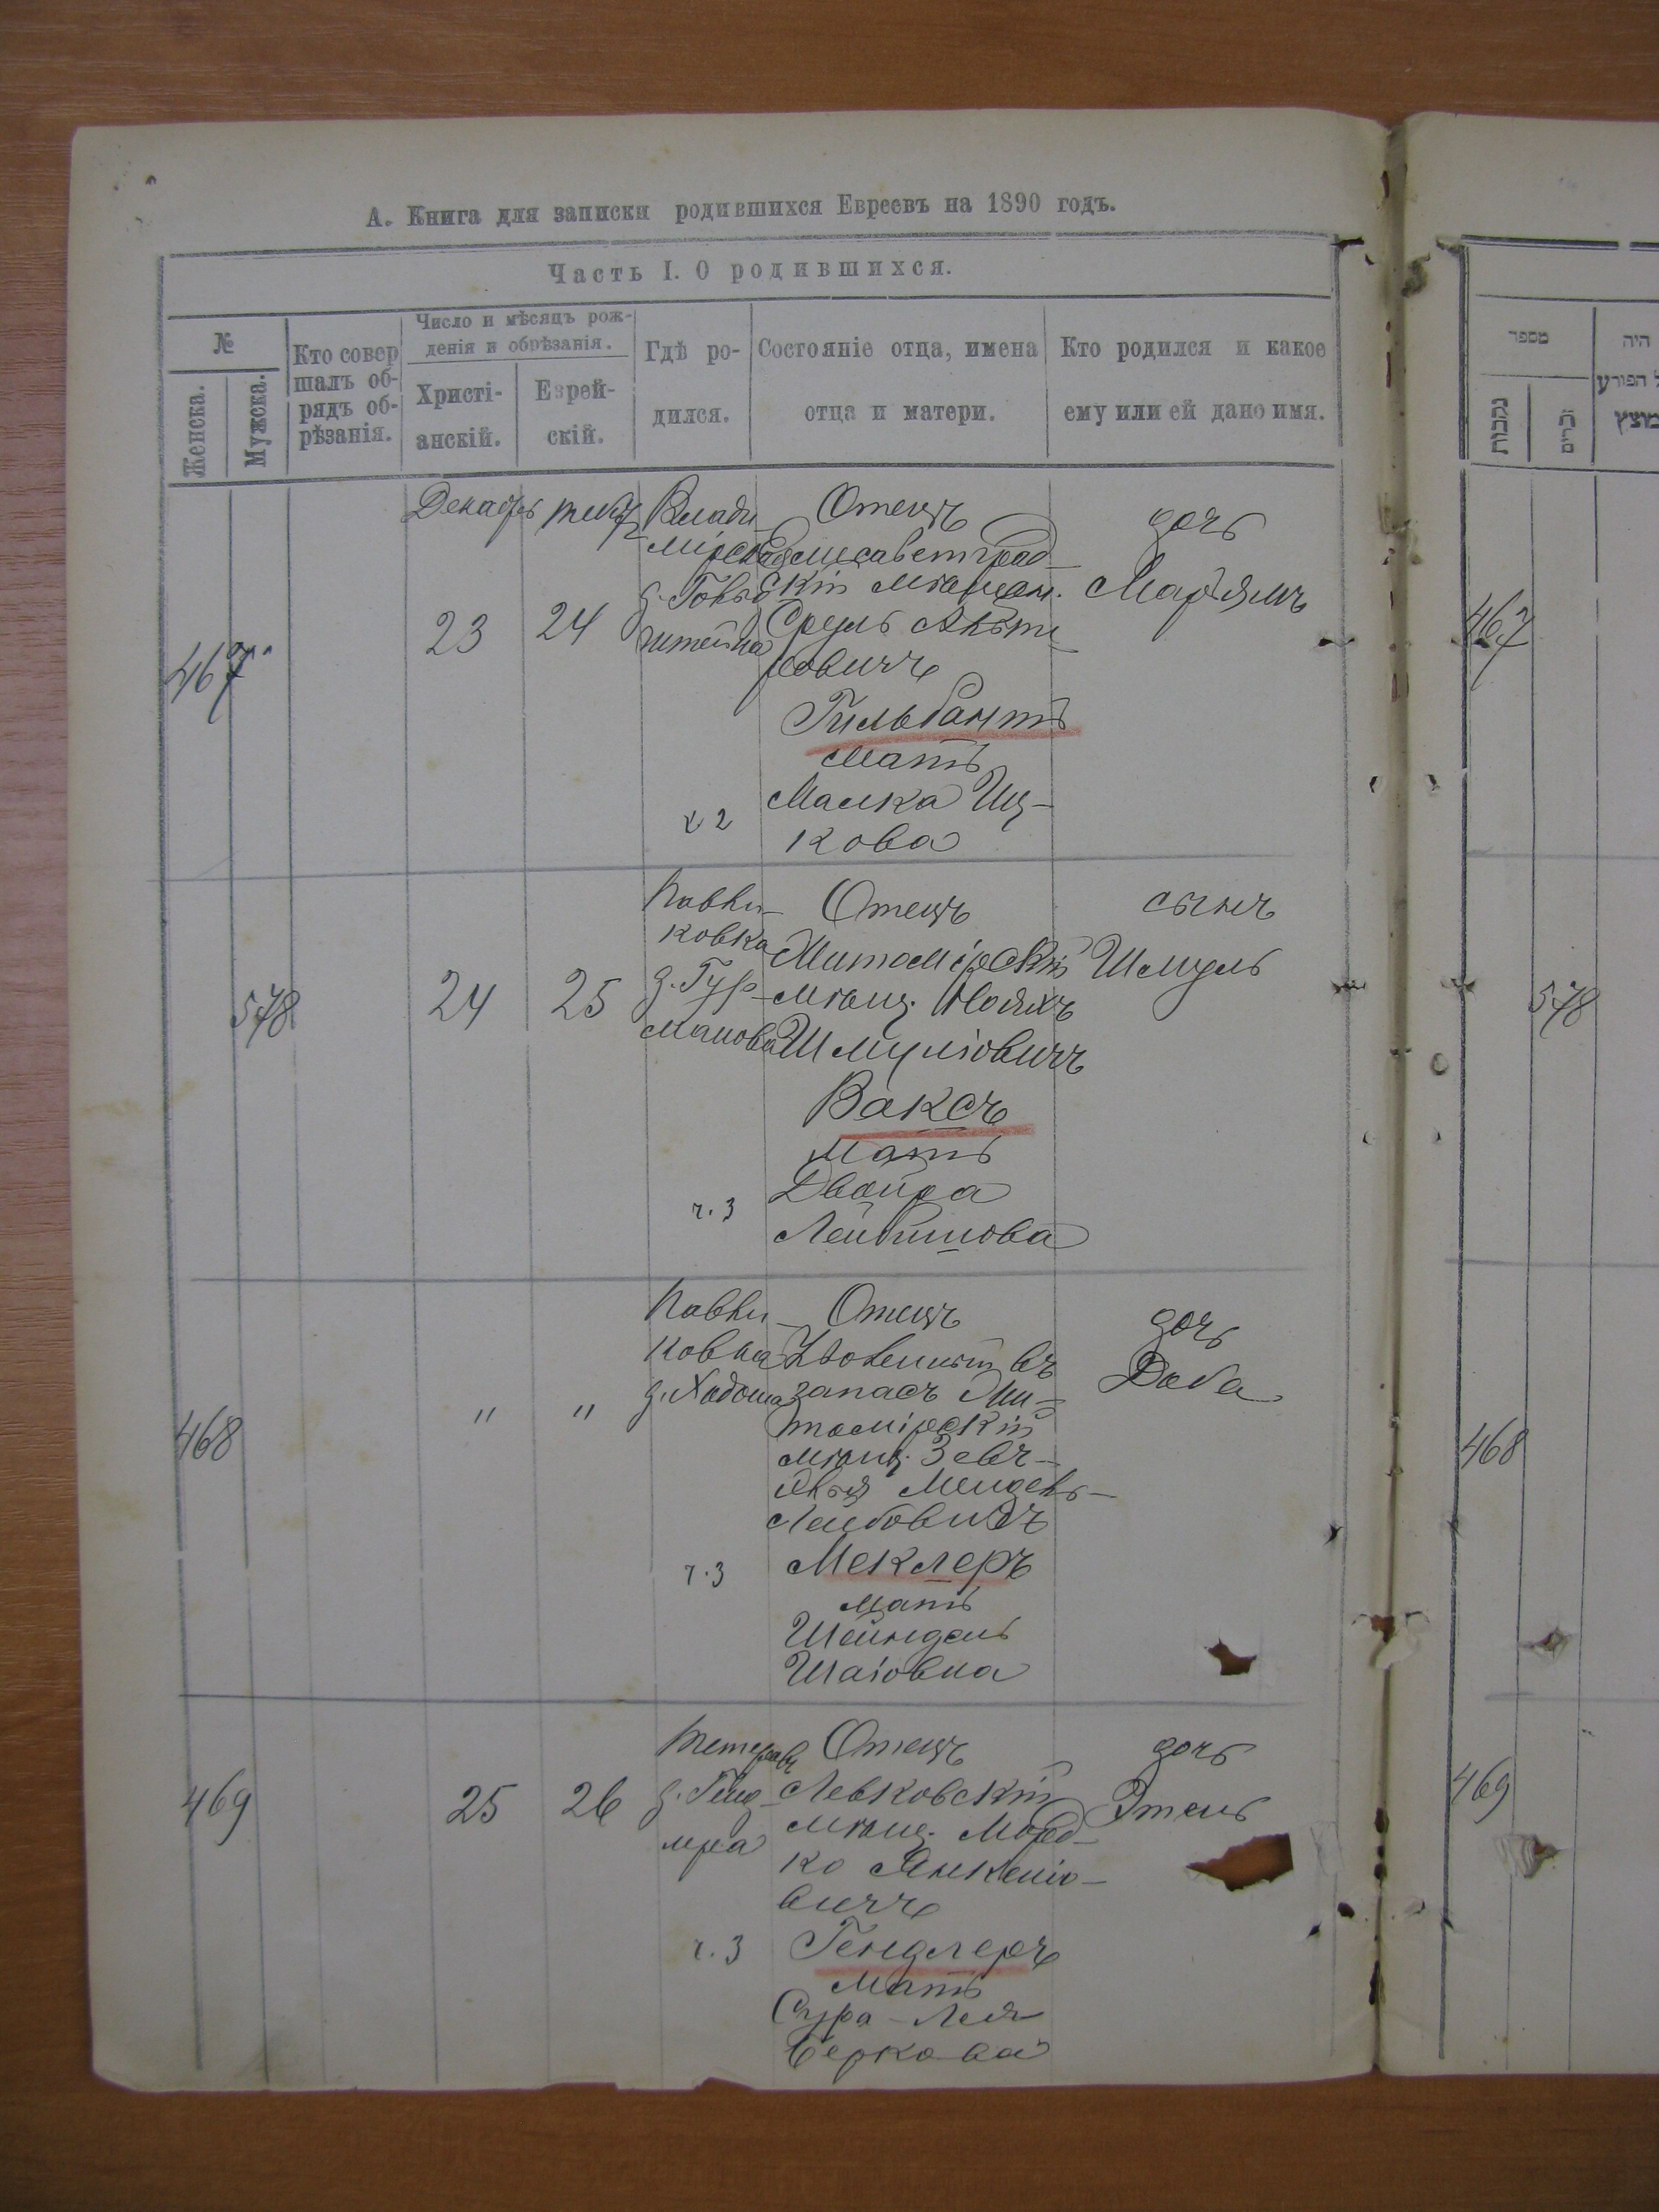 А. Книга для записки родившихся Евреевъ на 1890 годъ.
Часть I. О родившихся.
№
Женска.
Мужска.
Кто совер
шалъ об-
рядъ об-
рѣзанія.
Число и мѣсяцъ рож-
денія и обрѣзанія.
Христі-
анскій.
Еврей-
скій.
Гдѣ ро-
дился.
Состояніе отца, имена
отца и матери.
Кто родился и какое
ему или ей дано имя.
467
Декабрь
23
24
Влади
мірская
штейна
х 2
Отецъ
Елисаветград
скій мѣщан.
Сруль
ровичъ
Гильбантъ
мать
Малка Иц-
кова
дочь
Маріямъ
578
24
25
Павли-
ковка
д. Гур-
манова
ч. 3
Отецъ
Житомірскій
мѣщ. Нояхъ
Шмуліовичъ
Ваксъ
мать
Двойра
Лейбишова
сынъ
Шмуль
468
"
"
Павли-
ковка
д. Ходоша
ч. 3
Отецъ
Уволенный въ
запасъ Жи-
томірскій
мѣщ. Зевъ-
Мендель-
Лейбовичъ
Меклеръ
мать
Шейндель
Шаіовна
дочь
Доба
469
25
26
Тетеревъ
ч. 3
Отецъ
Левковскій
мѣщ. Морд-
ко Янкеліо-
вичъ
Гендлеръ
мать
Сура-Лея
Беркова
дочь
Этель
מספר
נקבות
זכרים
היה
הפורע
מוצץ
467
578
468
469